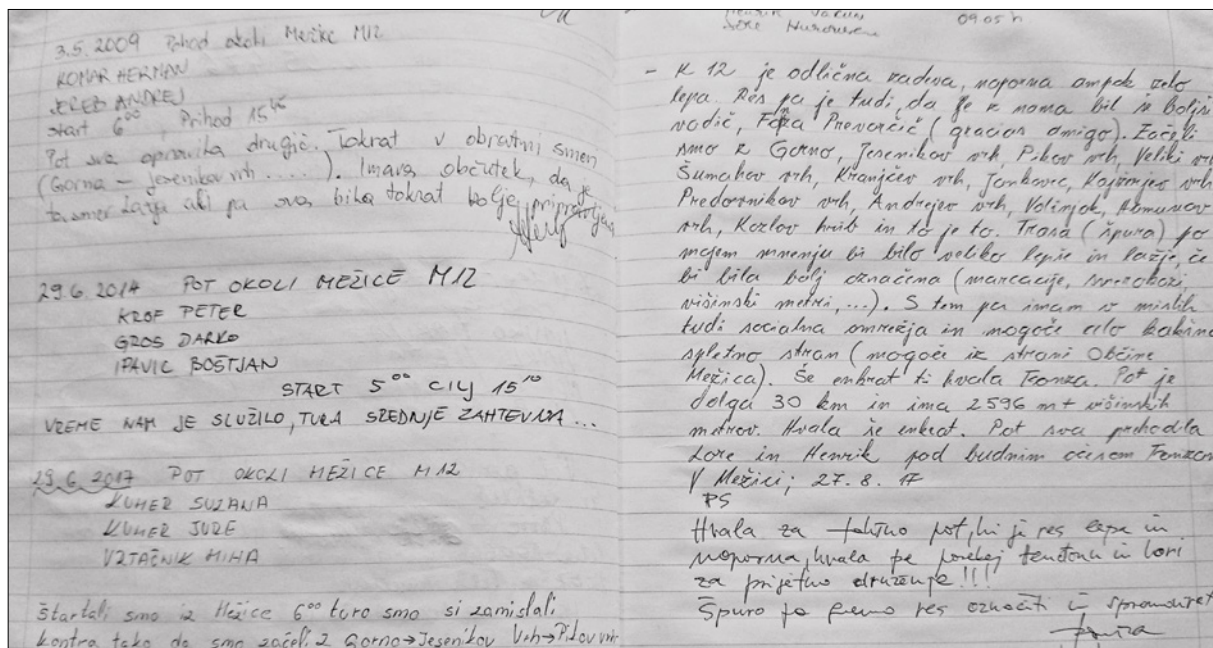 3.5.2009 Pohod okoli Mežice M12
KOMAR HERMAN
JEREB ANDREJ
start 6⁰⁰, Prihod 15⁴⁵
Pot sva opravila drugič. Tokrat v obratni smeri
(Gorna – Jesenikov vrh .....). Imava občutek, da je
ta smer lažja ali pa sva bila tokrat bolje pripravljena
29.6.2014 POT OKOLI MEŽICE M12
KROF PETER
GROS DARKO
IPAVIC BOŠTJAN
START 5⁰⁰ CILJ 15¹⁰
VREME NAM JE SLUŽILO, TURA SREDNJE ZAHTEVNA...
29.6.2017 POT OKOLI MEŽICE M12
KUMER SUZANA
KUMER JURE
VRTAČNIK MIHA
Štartali smo iz Mežice 6⁰⁰ turo smo si zamislili
kontra tako da smo začeli z Gorno→Jesenikov Vrh→Pikov vrh
09.05 h
- K 12 je odlična zadeva, naporna ampak zelo
lepa. Res pa je tudi, da je z nama bil še boljši
vodič, Prevorčič (gracias amigo). Začeli
smo z Gorno, Jesenikov vrh, Pikov vrh, Veliki vrh
Šumahov vrh, Kranjčev vrh, Jankovec, vrh
Predovnikov vrh, Andrejev vrh, Volinjak, vrh
vrh, Kozlov hrib in to je to. Trasa (špura) po
mojem mnenju bi bilo veliko lepše in lažje, če
bi bila bolj označena (marcacije, smerokazi,
višinski metri, ...). S tem pa imam v mislih
tudi socialna omrežja in mogoče celo kakšno
spletno stran (mogoče iz strani Občine
Mežica). Še enkrat ti hvala Fronza. Pot je
dolga 30 km in ima 2596 m+ višinskih
metrov. Hvala še enkrat. Pot sva prehodila
Lore in Henrik pod budnim očesom
V Mežici; 27. 8. 17
PS
Hvala za pot, ki je res lepa in
naporna, hvala pa in Lori
za prijetno druženje!!!
Špuro pa res označiti